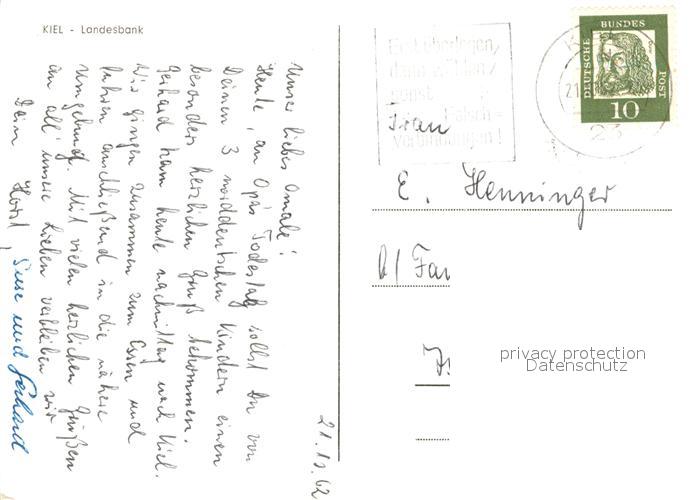 KIEL - Landesbank
21.10.62
Unser liebes Omale!
Heute, an Opas Todestag sollst Du von
Deinen 3 norddeutschen Kindern einen
besonders herzlichen Gruß bekommen.
Gerhard kam heute nachmittag nach Kiel.
Wir gingen zusammen zum Essen und
fuhren anschließend in die nähere
Umgebung. Mit vielen herzlichen Grüßen
an all' unsere Lieben verbleiben wir
Dein Horst, Suse und Gerhard
Erst überlegen,
dann wählen,
sonst
Falsch=
verbindungen!
DEUTSCHE BUNDES POST
10
23
Frau
E. Henninger
b/ Far
privacy protection
Datenschutz